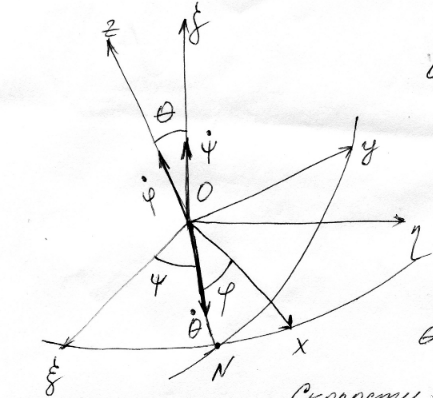 z ζ
θ
ψ̇
φ̇ O y
η
ψ φ
θ̇
ξ N x
Скорости